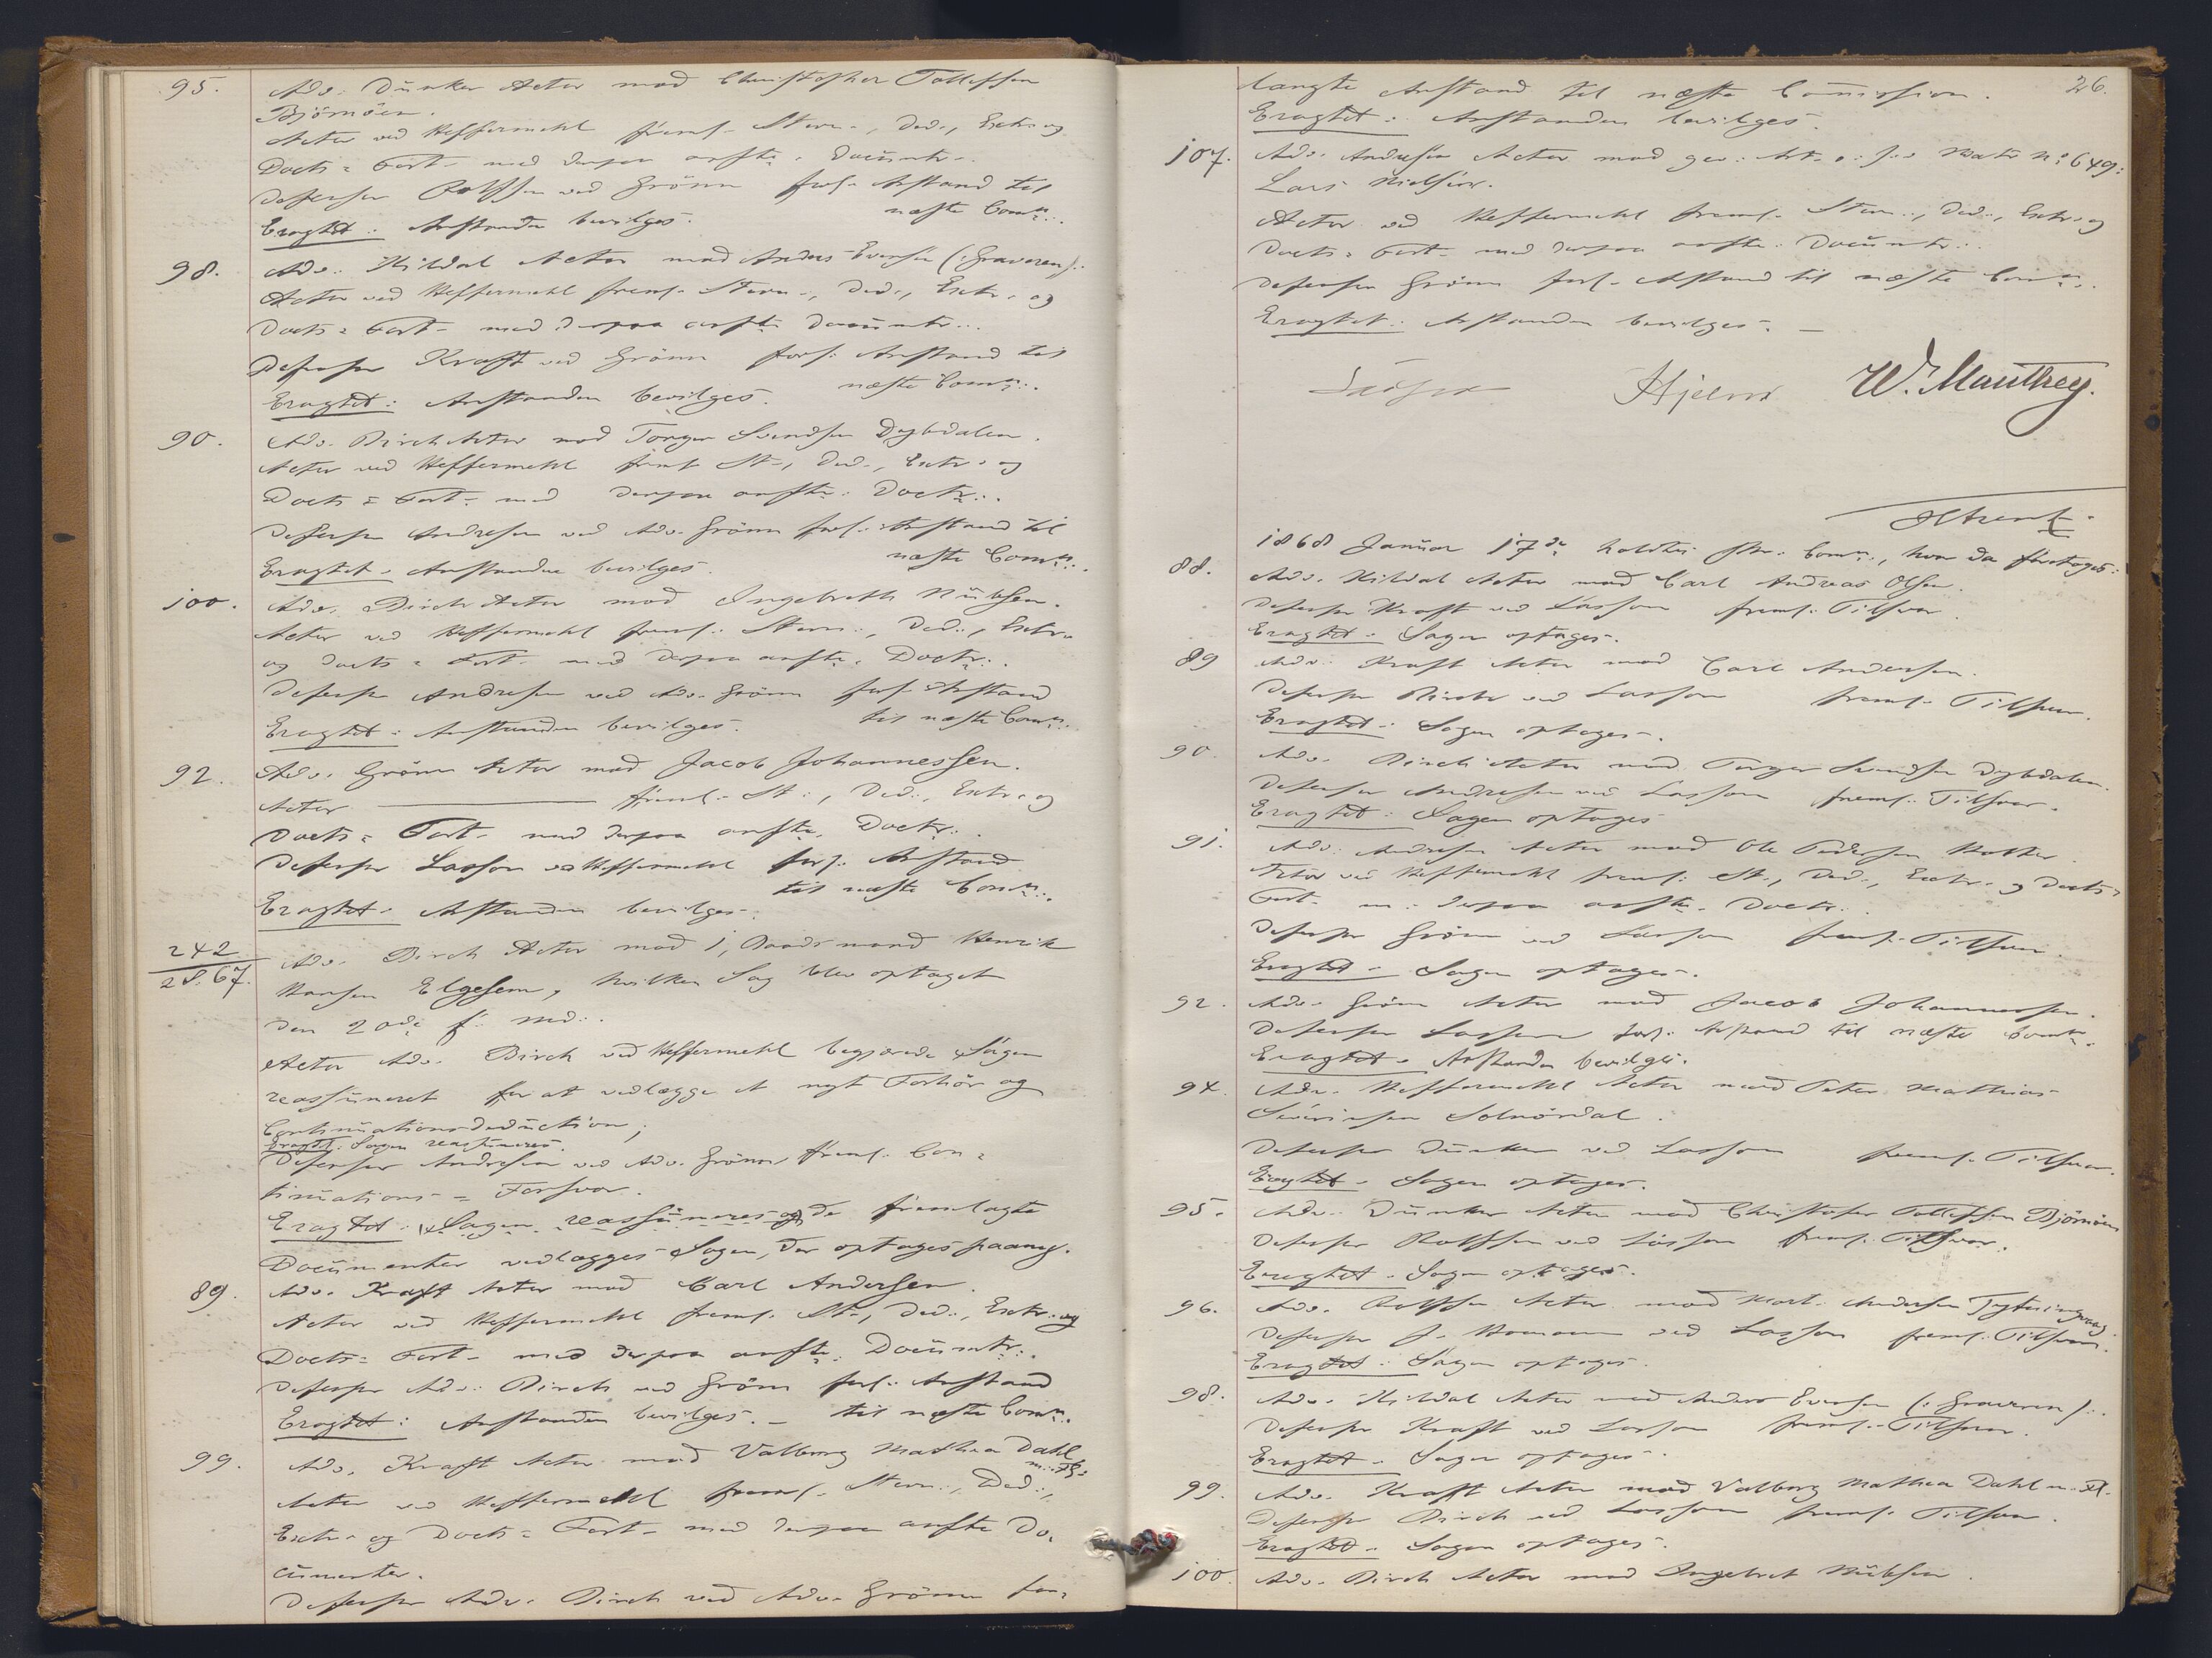 95. Adv. Dunker Actor mod Christopher Tollefsen
Björnöen.
Actor ved Heffermehl freml. Stevn., Ded., Extr. og
Docts = Fort. med derpaa anfte. Documtr.
Defensor Rolffsen ved Grönn forl. Anstand til
næste Comn.
Eragtet: Anstanden bevilges.
98. Adv. Hildal Actor mod Anders Evensen (: Graveren).
Actor ved Heffermehl freml. Stevn., Ded., Extr. og
Docts = Fort. med derpaa anfte Documtr.
Defensor Kraft ved Grönn forl. Anstand til
næste Comn.
Eragtet: Anstanden bevilges.
90. Adv. Birch Actor mod Torger Svendsen Dybdalen.
Actor ved Heffermehl freml St., Ded., Extr. og
Docts = Fort. med derpaa anfte. Doctr.
Defensor Andresen ved Adv. Grönn forl. Anstand til
næste Comn.
Eragtet. Anstanden bevilges.
100. Adv. Birch Actor mod Ingebreth Nübsen.
Actor ved Heffermehl freml. Stevn., Ded., Extr.
og Docts = Fort. med derpaa anfte. Doctr.
Defensor Andresen ved Adv. Grönn forl. Anstand
til næste Comn.
Eragtet: Anstanden bevilges.
92. Adv. Grönn Actor mod Jacob Johannessen.
Actor freml. St., Ded., Extr. og
Docts = Fort. med derpaa anfte. Doctr.
Defensor Lasson ved Heffermehl forl. Anstand
til næste Comn.
Eragtet. Anstanden bevilges.
242
2 S. 67. Adv. Birch Actor mod 1, Baadsmand Henrik
Hansen Elgesem, hvilken Sag blev optaget
den 20de f. Md.
Actor Adv. Birch ved Heffermehl begjærede Sagen
reassumeret for at vedlægge et nyt Forhör og
Continuationsdeduction;
Eragtet: Sagen reassumeres.
Defensor Andresen ved Adv. Grönn freml. Con=
tinuations = Forsvar.
Eragtet: Sagen reassumeres og de fremlagte
Documenter vedlægges Sagen, der optages paany.
89. Adv. Kraft Actor mod Carl Andersen.
Actor ved Heffermehl freml. St., Ded., Extr. og
Docts = Fort. med derpaa anfte. Documtr.
Defensor Adv. Birch ved Grönn forl. Anstand
til næste Comn.
Eragtet: Anstanden bevilges. —
99. Adv. Kraft Actor mod Valborg Mathea Dahl
m. Fl.
Actor ved Heffermehl freml. Stevn., Ded.,
Extr. og Docts = Fort. med derpaa anfte Do=
cumenter.
Defensor Adv. Birch ved Adv. Grönn for=
26.
langte Anstand til næste Commission.
Eragtet: Anstanden bevilges.
107. Adv. Andresen Actor mod gev. Matr. No 649:
Lars Nielsen.
Actor ved Heffermehl freml. Stevn., Ded., Extr. og
Docts = Fort. med derpaa anfte. Documtr.
Defensor Grönn forl. Anstand til næste Comn.
Eragtet: Anstanden bevilges. —
Hjelm W. Manthey.
1868 Januar 17de holdtes Comn., hvor da foretoges:
88. Adv. Hildal Actor mod Carl Andreas Olsen.
Defensor Kraft ved Lasson freml. Tilsvar.
Eragtet. Sagen optages.
89 Adv. Kraft Actor mod Carl Andersen.
Defensor Birch ved Lasson freml. Tilsvar.
Eragtet. Sagen optages.
90 Adv. Birch Actor mod Torger Svendsen Dybdalen.
Defensor Andresen ved Lasson freml. Tilsvar.
Eragtet: Sagen optages
91. Adv. Andresen Actor mod Ole Pedersen
Actor ved Heffermehl freml. St., Ded., Extr. og Docts =
Fort. m. derpaa anfte. Doctr.
Defensor Grönn ved Lasson freml. Tilsvar.
Eragtet. Sagen optages.
92. Adv. Grönn Actor mod Jacob Johannessen.
Defensor Lasson forl. Anstand til næste Comn.
Eragtet. Anstanden bevilges.
94. Adv. Heffermehl Actor mod Peter Mathias
Severinsen Solnördal.
Defensor Dunker ved Lasson freml. Tilsvar.
Eragtet. Sagen optages.
95. Adv. Dunker Actor mod Christopher Tollefsen Björnöen
Defensor Rolffsen ved Lasson freml. Tilsvar.
Eragtet. Sagen optages.
96. Adv. Rolffsen Actor mod Mort. Andersen
Defensor J. Homann ved Lasson freml. Tilsvar.
Eragtet: Sagen optages.
98. Adv. Hildal Actor mod Anders Evensen (: Graveren).
Defensor Kraft ved Lasson freml. Tilsvar.
Eragtet. Sagen optages.
99. Adv. Kraft Actor mod Valborg Mathea Dahl m. Fl.
Defensor Birch ved Lasson freml. Tilsvar.
Eragtet. Sagen optages.
100 Adv. Birch Actor mod Ingebret Nübsen.